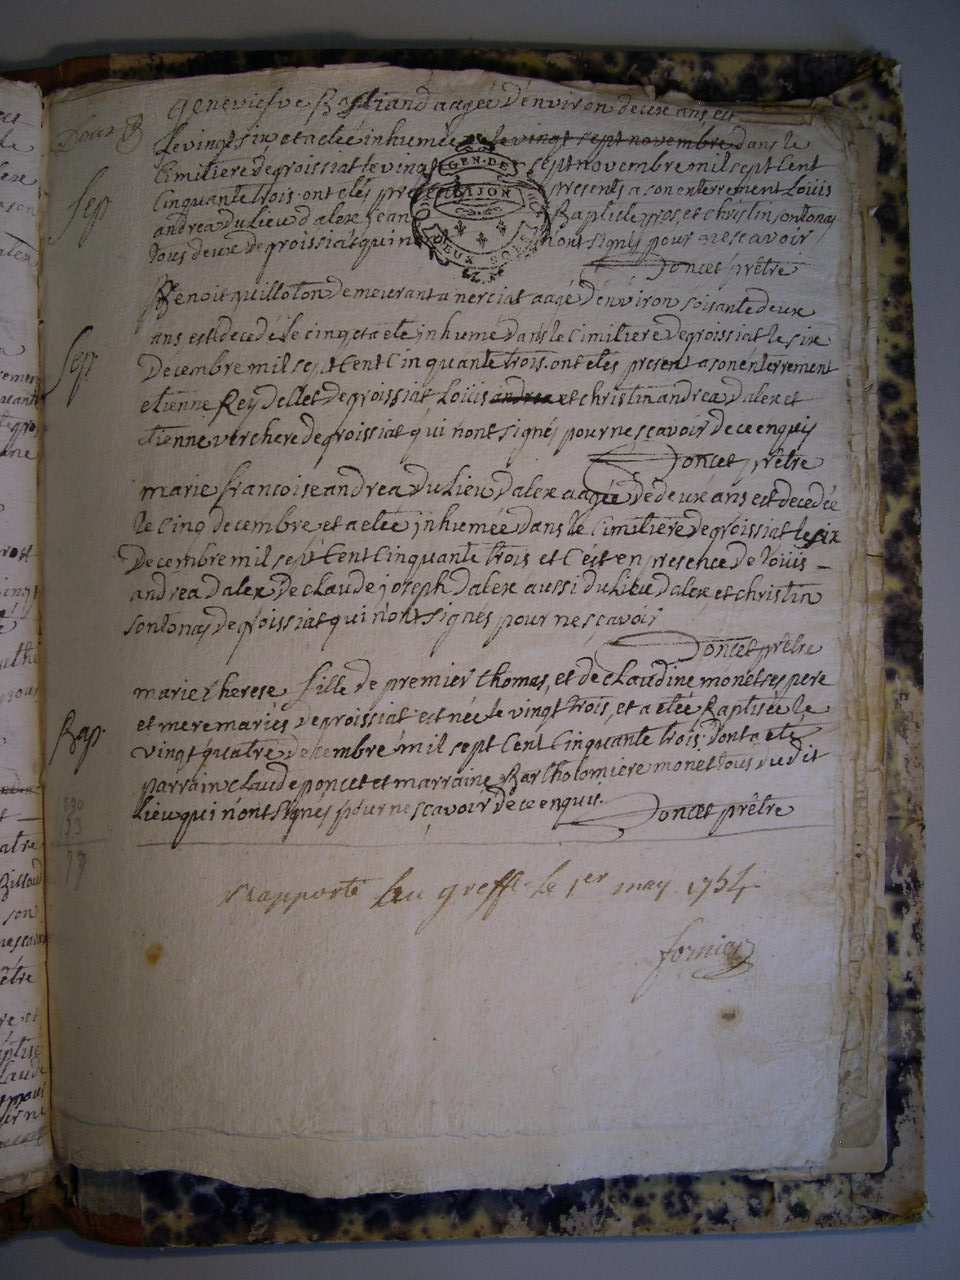 geneviefve Bastiand aagée d'environ deux ans est
le vingt six et a eté inhumée le vingt sept novembre dans le
Cimitiere de groissiat le vingt sept novembre mil sept Cent
Cinquante trois. ont etés presents a son enterrement Loüis
andrea du lieu d'alex jean Baptiste gros, et christin sontonas
tous deux de groissiat qui n'ont signés pour ne scavoir
Doncet prêtre
Sep
Benoit guilloton demeurant a nerciat aagé d'environ soisante deux
ans est decedé le cinq et a eté inhumé dans le Cimitiere de groissiat le six
Decembre mil sept Cent Cinquante trois. ont etés present a son enterrement
etienne Reydellet de groissiat Loüis andrea et christin andrea d'alex et
etienne verchere de groissiat qui n'ont signés pour ne scavoir de ce enquis
Doncet prêtre
Sep
marie francoise andrea du lieu d'alex aagée de deux ans est decedée
le cinq decembre et a etée inhumée dans le Cimitiere de groissiat le six
Decembre mil sept Cent Cinquante trois et c'est en presence de Loüis
andrea d'alex de claude joseph d'alex aussi du lieu d'alex et christin
sontonas de groissiat qui n'ont signés pour ne scavoir
Doncet prêtre
Bap.
marie therese fille de premier thomas, et de claudine monet ses pere
et mere mariés de groissiat est née le vingt trois, et a etée Baptisée le
vingt quatre decembre mil sept Cent Cinquante trois. dont a eté
parrain claude poncet et marraine Bartholomiere monet tous dudit
lieu qui n'ont signes pour ne scavoir de ce enquis.
Doncet prêtre
rapporté au greffe le 1er may 1754
fornier
GEN. DE DIJON
DEUX SOLS